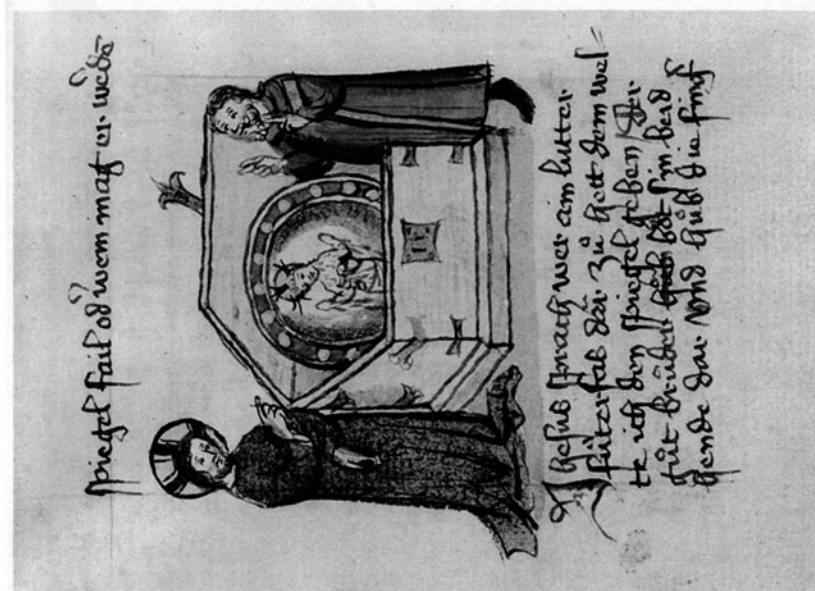 spiegel fail od wem mag er werdē
Jhesus sprach wer ain lutter
lutter fas dar zů hett dem wel=
te ich den spiegel geben Der
gůt brůder bot sin bend
hende dar vnd hůb die finf